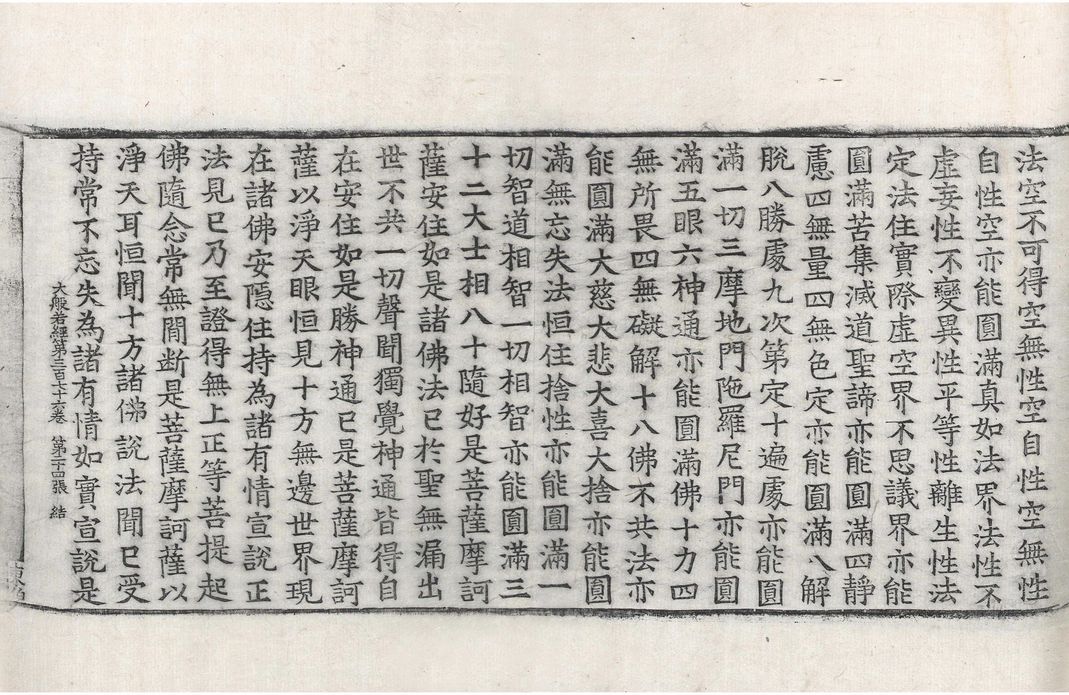 法空不可得空無性空自性空無性
自性空亦能圓滿真如法界法性不
虛妄性不變異性平等性離生性法
定法住實際虛空界不思議界亦能
圓滿苦集滅道聖諦亦能圓滿四靜
慮四無量四無色定亦能圓滿八解
脫八勝處九次第定十遍處亦能圓
滿一切三摩地門陁羅尼門亦能圓
滿五眼六神通亦能圓滿佛十力四
無所畏四無礙解十八佛不共法亦
能圓滿大慈大悲大喜大捨亦能圓
滿無忘失法恒住捨性亦能圓滿一
切智道相智一切相智亦能圓滿三
十二大士相八十隨好是菩薩摩訶
薩安住如是諸佛法已於聖無漏出
世不共一切聲聞獨覺神通皆得自
在安住如是勝神通已是菩薩摩訶
薩以淨天眼恒見十方無邊世界現
在諸佛安隱住持為諸有情宣說正
法見已乃至證得無上正等菩提起
佛隨念常無間斷是菩薩摩訶薩以
淨天耳恒聞十方諸佛說法聞已受
持常不忘失為諸有情如實宣說是
大般若經第三百七十六卷 第二十四張 結